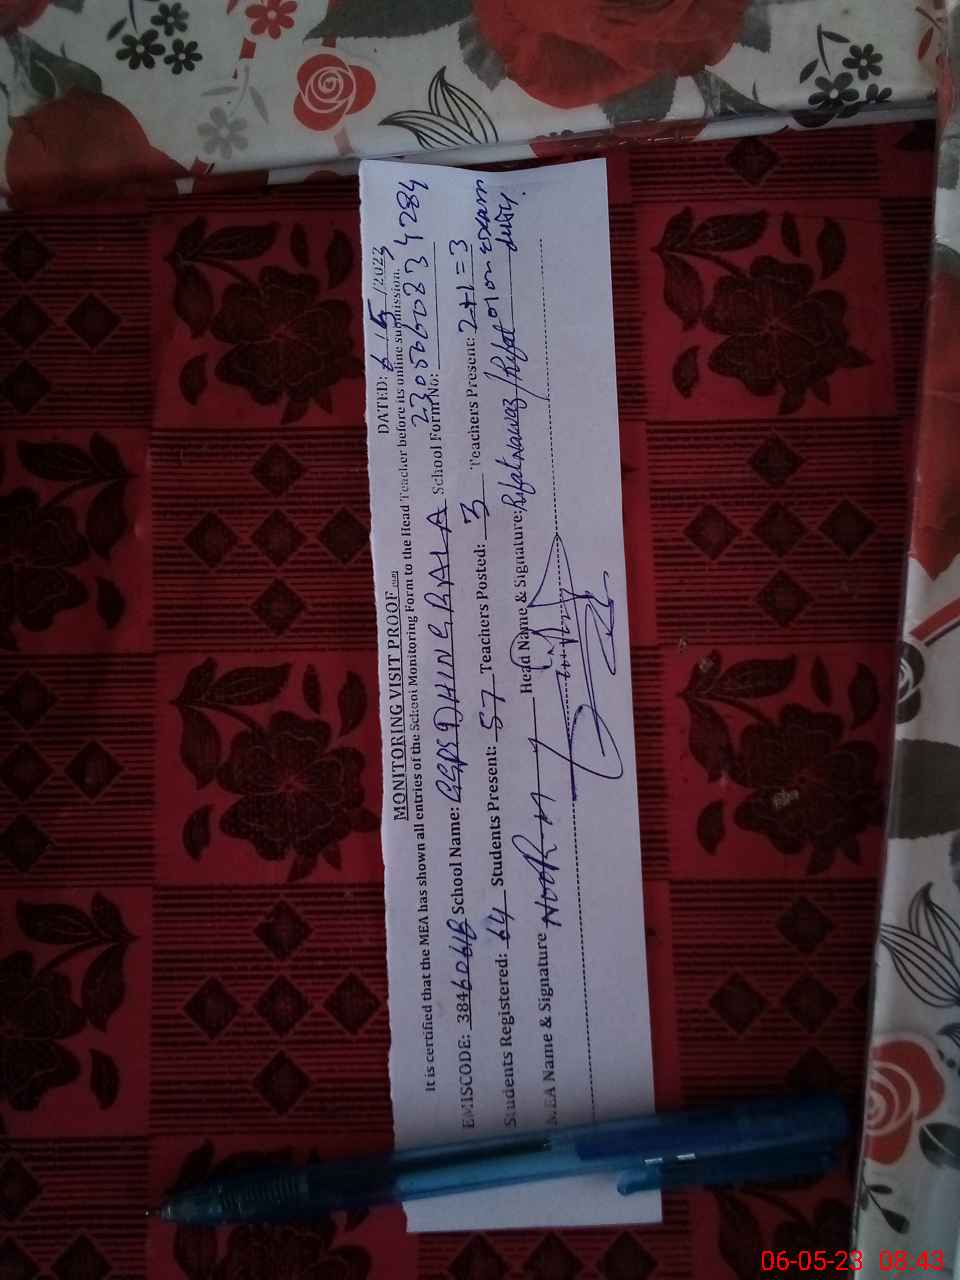 DATED: 6/5/2023
MONITORING VISIT PROOF
It is certified that the MEA has shown all entries of the School Monitoring Form to the Head Teacher before its online submission.
EMISCODE: School Name: GGPS DHINGRALA School Form No:
Students Registered: 64 Students Present: 57 Teachers Posted: 3 Teachers Present: 2+1=3
MEA Name & Signature NOOR M Head Name & Signature: Rifat Nawaz / Rifat 01 on exam duty.
06-05-23 08:43